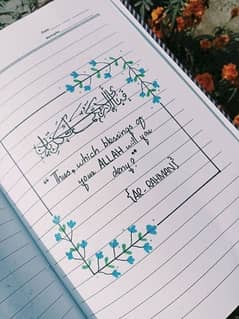 Date
فبأي آلاء ربكما تكذبان
"Thus, which blessings of
your ALLAH will you
deny?"
{AR-RAHMAN}